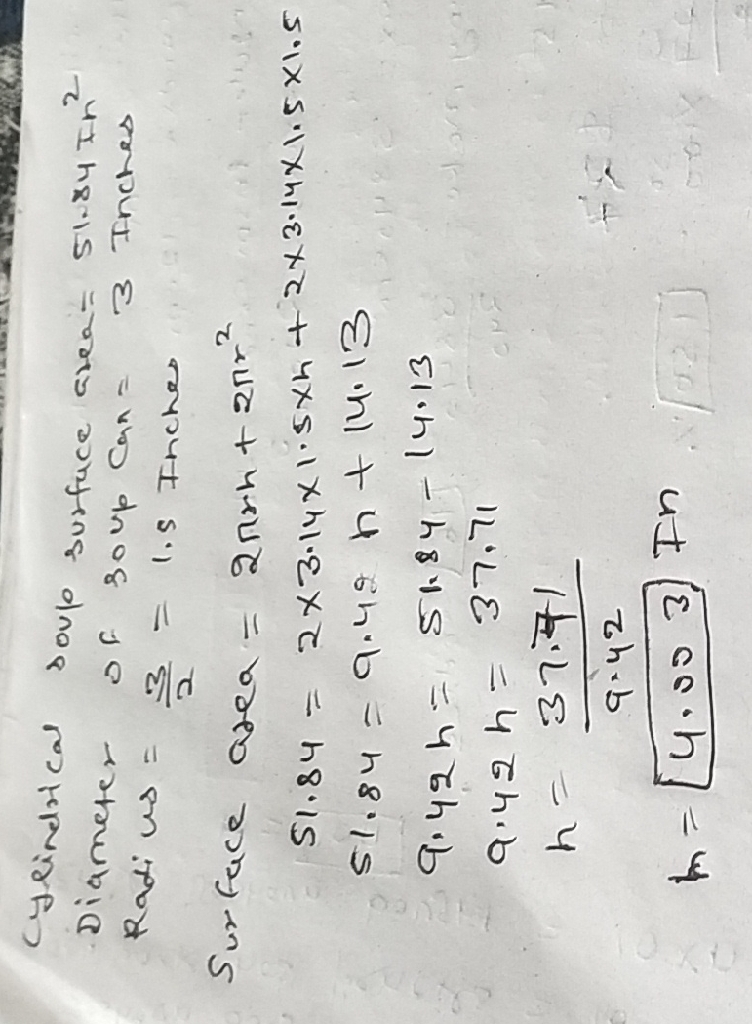 Cylindrical soup surface area = 51.84 In²
Diameter of soup Can = 3 Inches
Radius = 3/2 = 1.5 Inches
Surface area = 2πrh + 2πr²
51.84 = 2×3.14×1.5×h + 2×3.14×1.5×1.5
51.84 = 9.42 h + 14.13
9.42 h = 51.84 - 14.13
9.42 h = 37.71
h = 37.71/9.42
h = 4.003 In